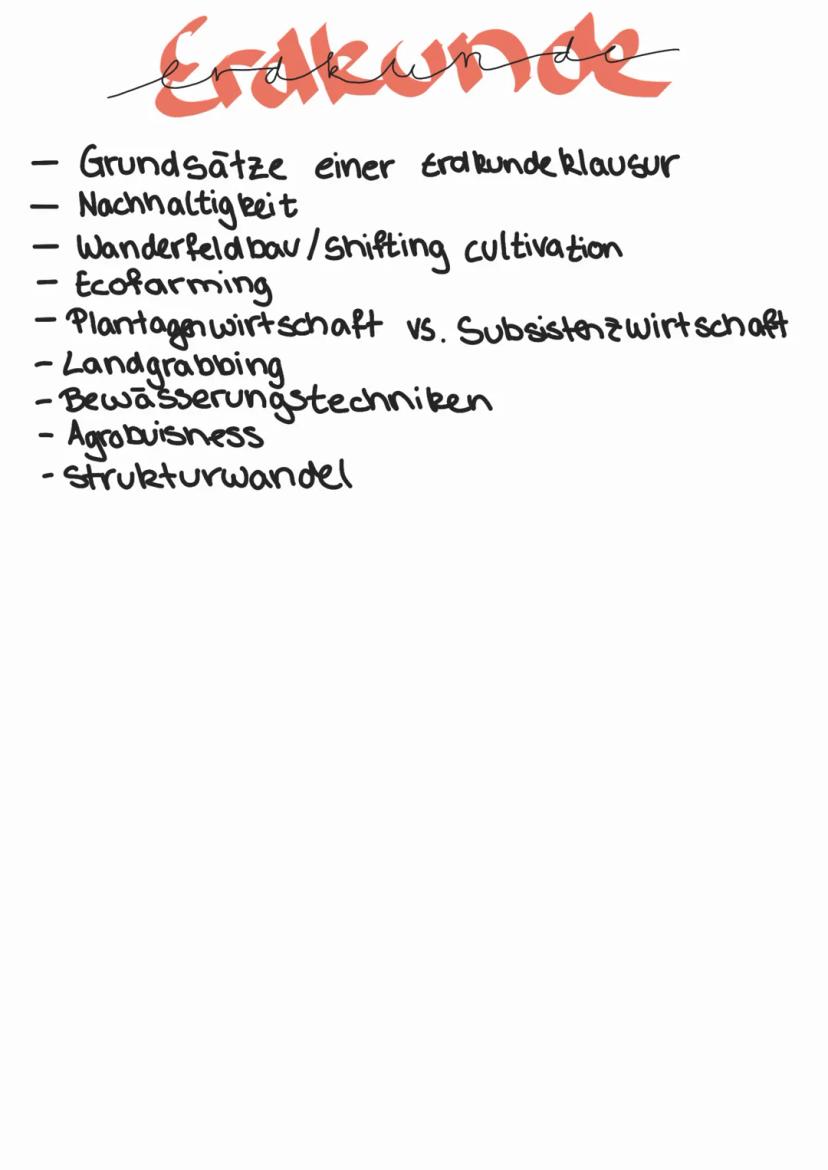 Erdkunde
erdkunde
- Grundsätze einer Erdkundeklausur
- Nachhaltigkeit
- Wanderfeldbau/Shifting cultivation
- Ecofarming
- Plantagenwirtschaft vs. Subsistenzwirtschaft
- Landgrabbing
- Bewässerungstechniken
- Agrobuisness
- Strukturwandel